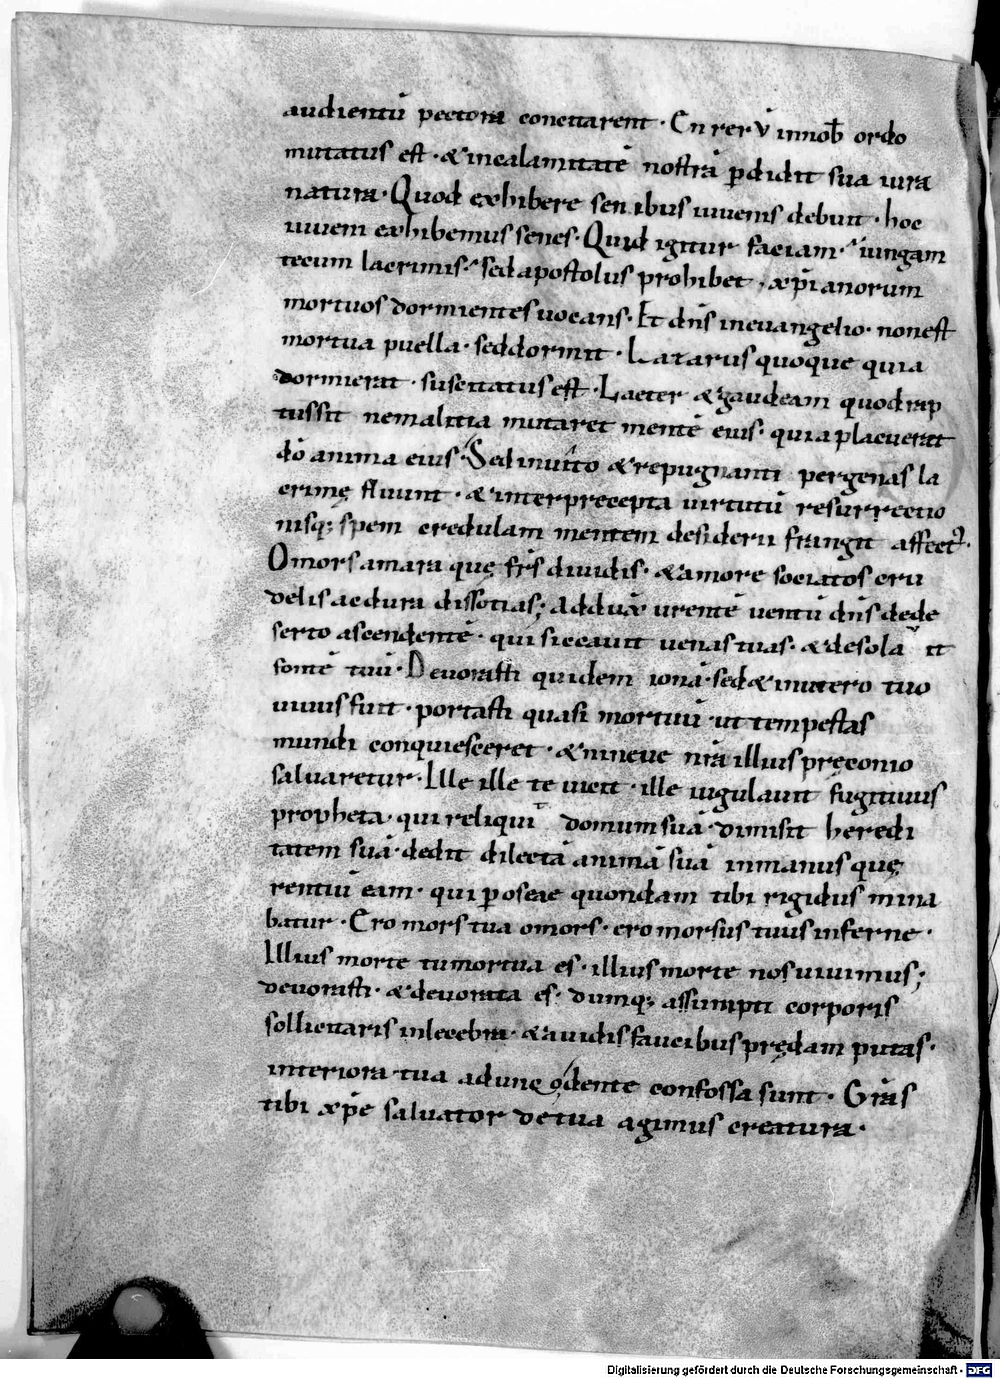 audientū pectora concitarent · En rerū innob̄ ordo
mutatus est · & incalamitatē nostrā p̄didit sua iura
natura · Quod exhibere senibus iuvenis debuit · hoc
iuveni exhibemus senes · Quid igitur faciam · iungam
tecum lacrimis · sed apostolus prohibet · xp̄ianorum
mortuos dormientes vocans · Et dn̄s inevangelio · non est
mortua puella · sed dormit · Lazarus quoque quia
dormierat · suscitatus est · Laeter & gaudeam quod rap
tus sit ne malitia mutaret mentē eius · quia placuerat
dō anima eius · Sed invito & repugnanti per genas la
crimę fluunt · & inter precepta virtutū resurrectio
nisq; spem credulam mentem desiderii frangit affect᾽ ·
O mors amara quę frīs dividis · & amore sociatos cru
delis ac dura dissotias; Adduxit urentē ventū dn̄s dede
serto ascendentē · qui siccavit venas tuas · & desolavit
fontē tuū · Devorasti quidem ionā · sed & in utero tuo
vivus fuit · portasti quasi mortuū ut tempestas
mundi conquiesceret · & nineve nr̄a illius pręconio
salvaretur · Ille ille te vicit · ille iugulavit fugitivus
propheta · qui reliquit domum suā · dimisit heredi
tatem suā · dedit dilectā animā suā in manus quę
rentiū eam · qui p oseae quondam tibi rigidus mina
batur · Ero mors tua o mors · ero morsus tuus inferne ·
Illius morte tu mortua es · illius morte nos vivimus;
devorasti · & devorata es · dumq; assumpti corporis
sollicitaris inlecebra · & avidis faucibus prędam putas ·
interiora tua adunco dente confossa sunt · Gr̄as
tibi xp̄e salvator de tua agimus creatura ·
Digitalisierung gefördert durch die Deutsche Forschungsgemeinschaft - DFG